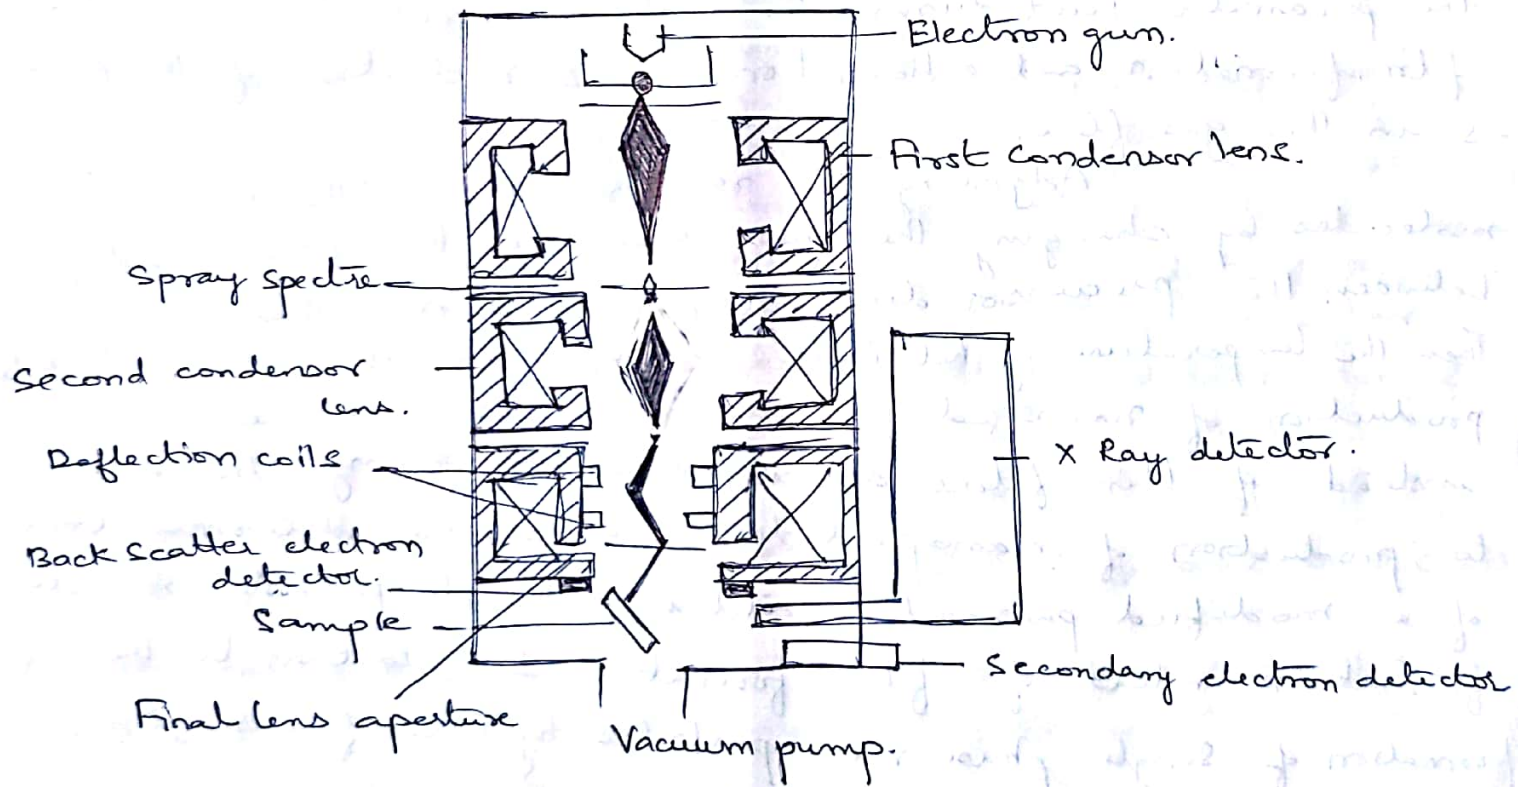 Electron gun.
First Condensor lens.
Spray spectre
Second condensor
lens.
Deflection coils
X Ray detector.
Back Scatter electron
detector.
Sample
Secondary electron detector
Final lens aperture
Vacuum pump.